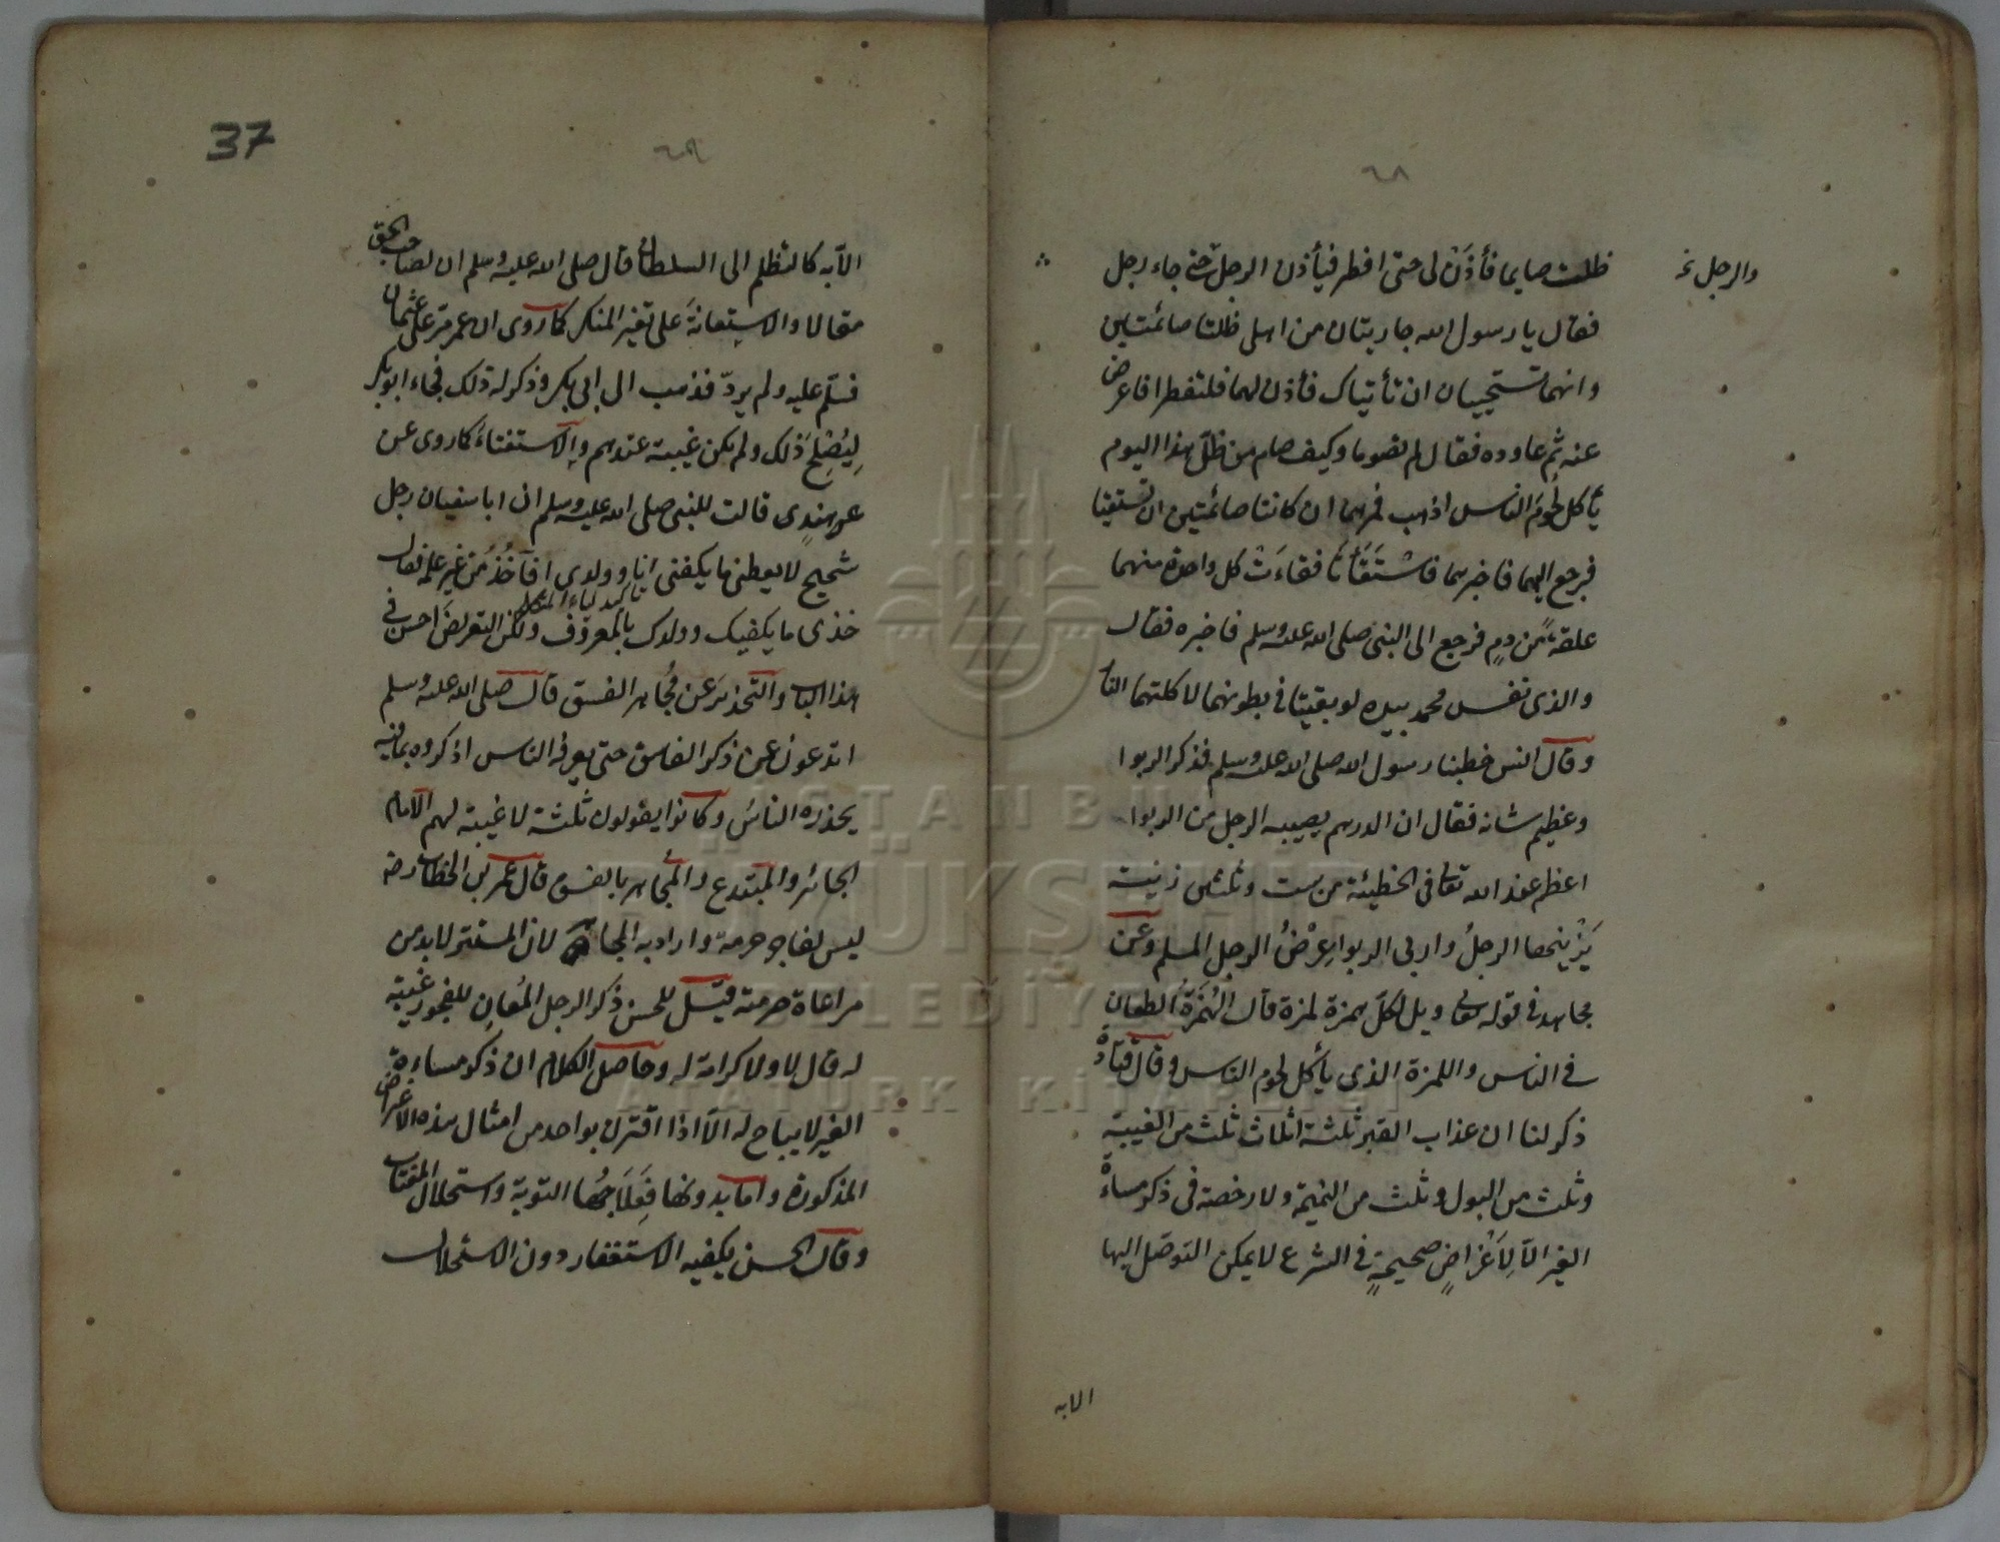 ٦٨
والرجل نخ
ظلت صايما فأذن لى حتى افطر فيأذن الرجل حتى جاء رجل
فقال يا رسول الله جاريتان من اهلى ظلتا صائمتين
وانهما تستحييان ان تأتياك فأذن لهما فلتفطرا فاعرض
عنه ثم عاوده فقال لم تصوما وكيف صام من ظلّ هذا اليوم
يأكل لحوم الناس اذهب فمرهما ان كانتا صائمتين ان تستقيئا
فرجع اليهما فاخبرهما فاستقأتا فقاءت كل واحدة منهما
علقة من دم فرجع الى النبى صلى الله عليه وسلم فاخبره فقال
والذى نفس محمد بيده لو بقيتا فى بطونهما لاكلتهما النار
وقال انس خطبنا رسول الله صلى الله عليه وسلم فذكر الربوا
وعظيم شانه فقال ان الدرهم يصيبه الرجل من الربوا
اعظم عند الله تعالى فى الخطيئة من ست وثلثين زنية
يزنيها الرجل واربى الربوا عرض الرجل المسلم وعن
مجاهد فى قوله تعالى ويل لكل همزة لمزة قال الهمزة الطعان
فى الناس واللمزة الذى يأكل لحوم الناس وقال قتادة
ذكر لنا ان عذاب القبر ثلثة اثلاث ثلث من الغيبة
وثلث من البول وثلث من النميمة ولا رخصة فى ذكر مساءة
الغير الّا لاغراض صحيحة فى الشرع لا يمكن التوصل اليها
الا به
37
٦٩
الّا به كالتظلم الى السلطان قال صلى الله عليه وسلم ان لصاحب الحق
مقالا والاستعانة على تغير المنكر كما روى ان عمر مرّ على عثمان
فسلّم عليه ولم يردّ فذهب الى ابى بكر وذكر له ذلك فجاء ابو بكر
ليصلح ذلك ولم يكن غيبة عندهم والاستفتاء كما روى عن
هند قالت للنبى صلى الله عليه وسلم ان ابا سفيان رجل
شحيح لا يعطينى ما يكفنى انا وولدى افآخذ من غير علمه فقال
خذى ما يكفيك وولدك بالمعروف ولكن التعريض احسن فى
هذا الباب والتحذير عن مجاهر الفسق قال صلى الله عليه وسلم
اتدعون عن ذكر الفاسق حتى يعرفه الناس اذكروه بما فيه
يحذره الناس وكانوا يقولون ثلثة لا غيبة لهم الامام
الجائر والمبتدع والمجاهر بالفسق قال عمر بن الخطاب رضـ
ليس لفاجر حرمة واراد به المجاهر لان المستتر لابد من
مراعاة حرمته قيل للحسن ذكر الرجل المعلن للفجور غيبة
له قال لا ولا كرامة له وحاصل الكلام ان ذكر مساءة
الغير لا يباح له الّا اذا اقترن بواحد من امثال هذه الاغراض
المذكورة واما بدونها فعلاجها التوبة واستحلال المغتاب
وقال الحسن يكفيه الاستغفار دون الاستحلال
İSTANBUL
BÜYÜKŞEHİR
BELEDİYESİ
ATATÜRK KİTAPLIĞI